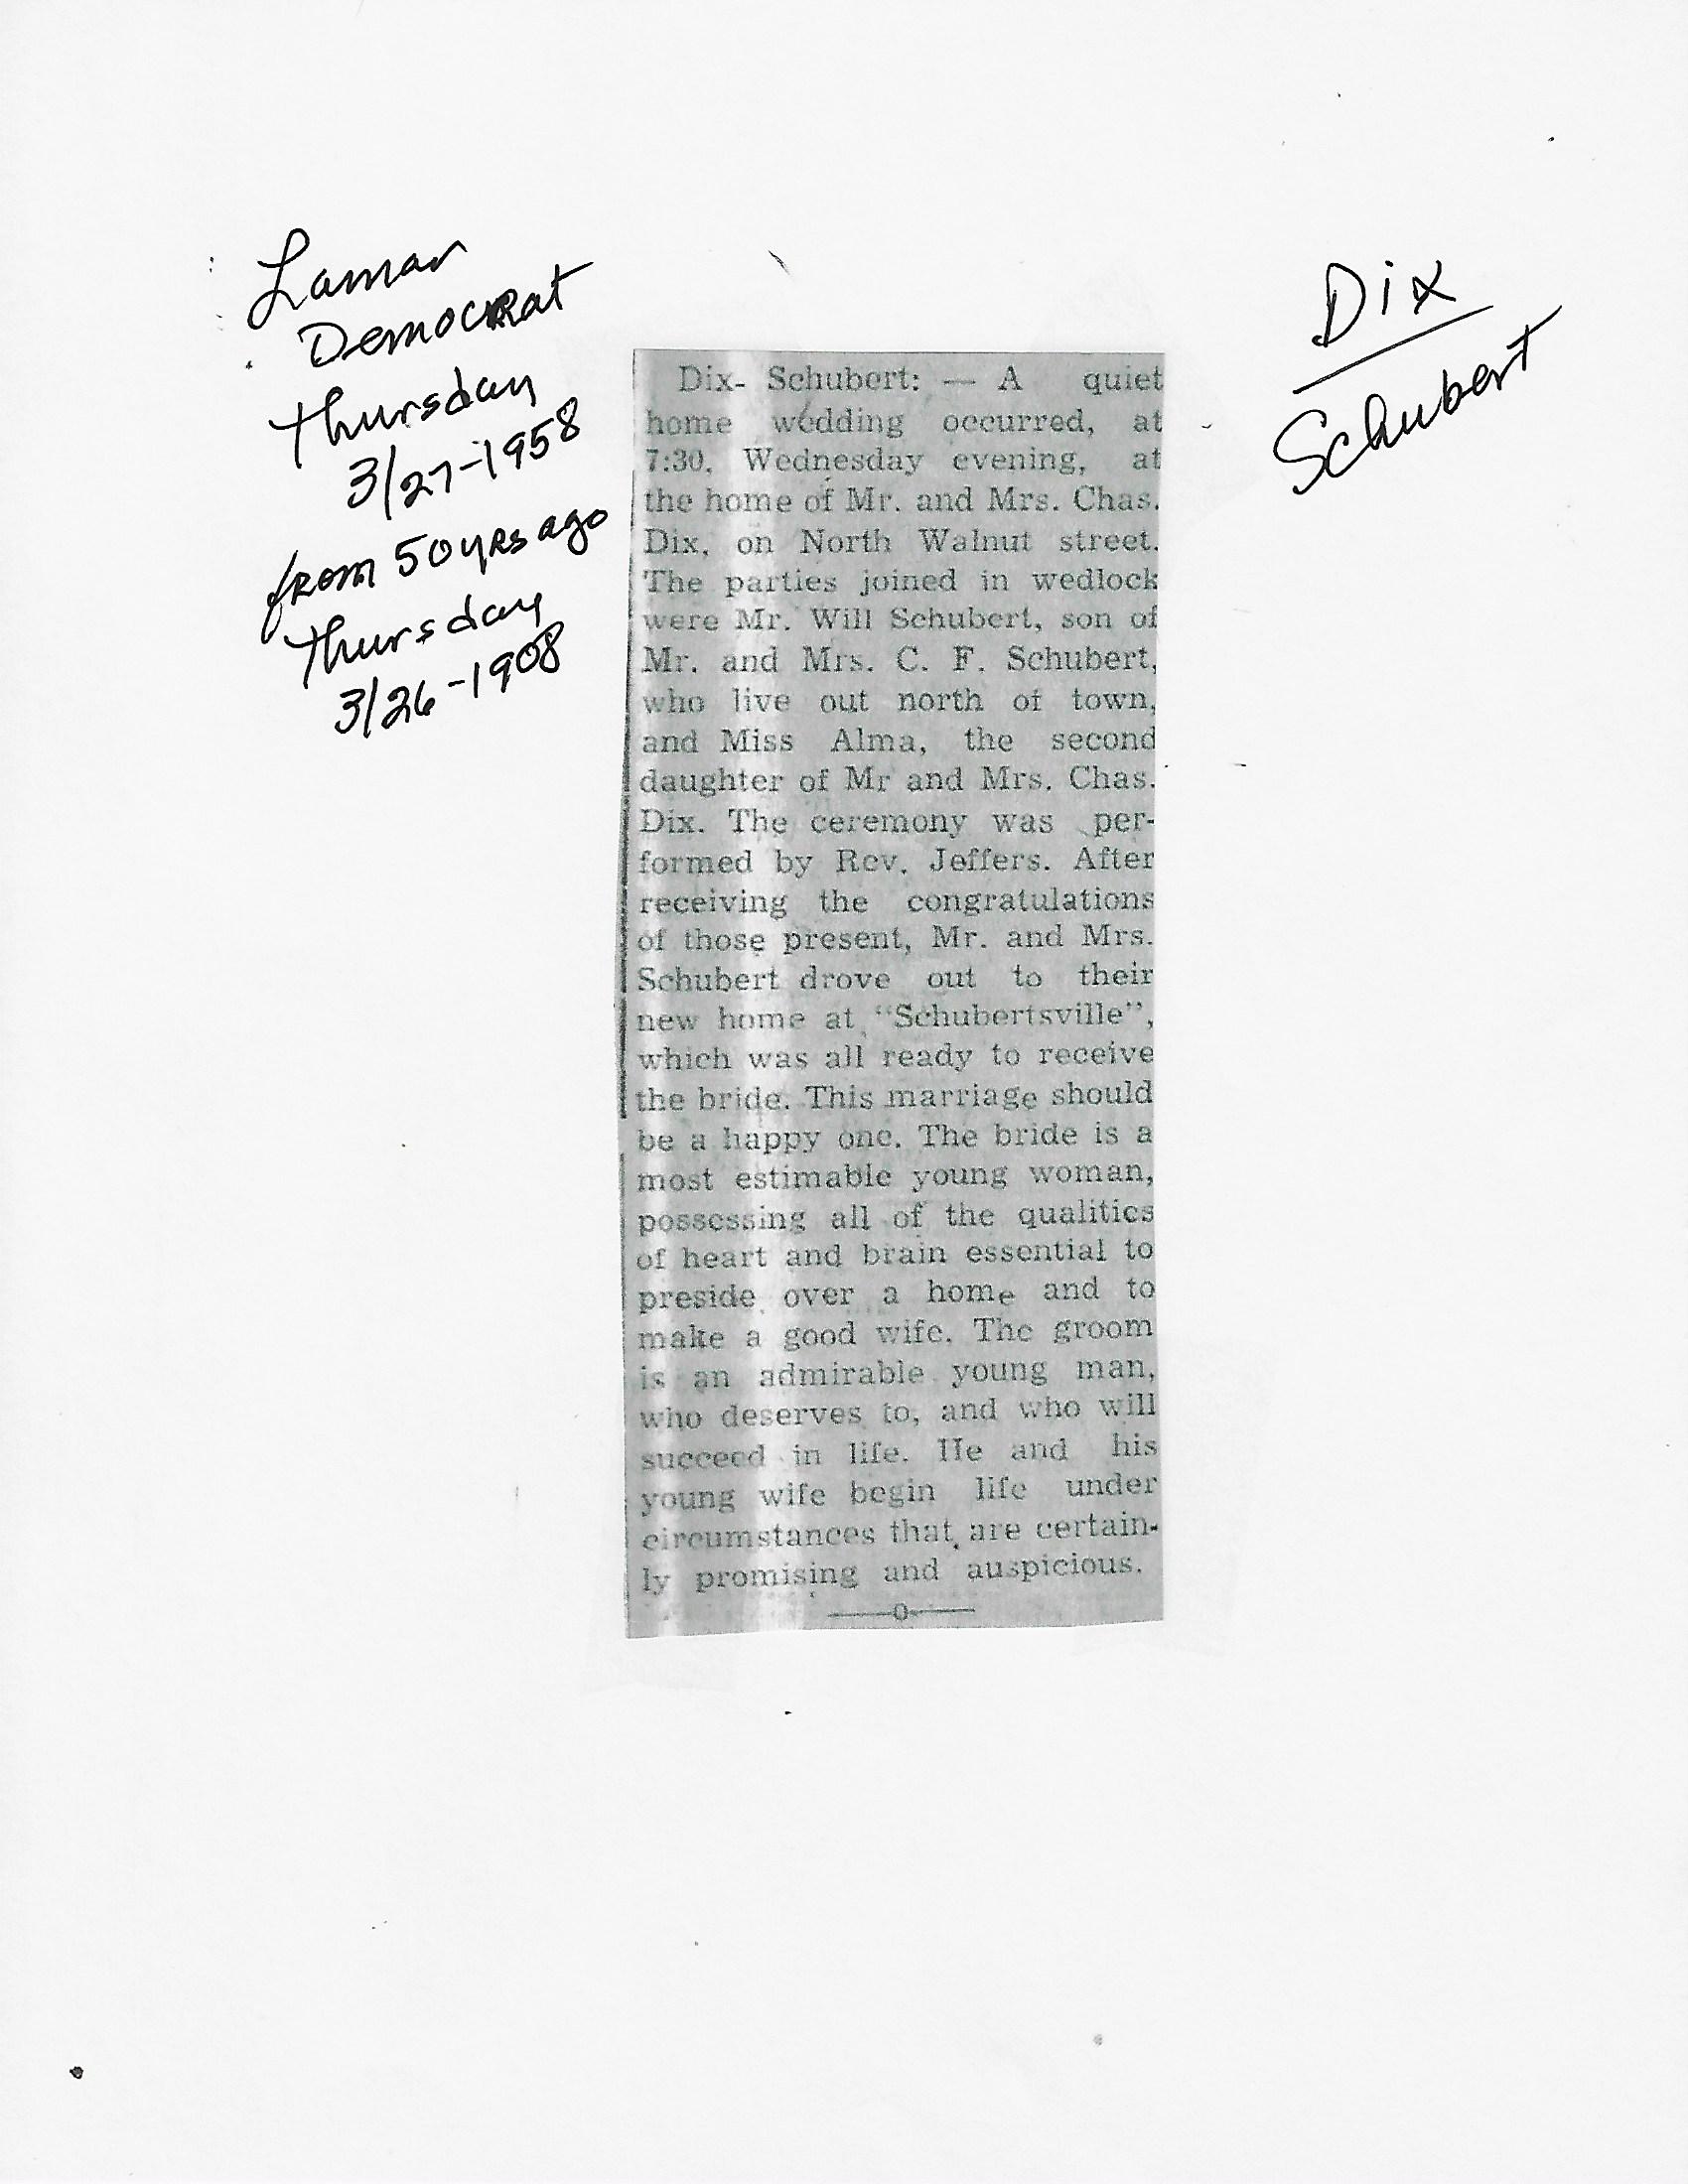 Lamar
Democrat
Thursday
3/27-1958
from 50 yrs ago
Thursday
3/26-1908
Dix
Schubert
Dix- Schubert: — A quiet
home wedding occurred, at
7:30, Wednesday evening, at
the home of Mr. and Mrs. Chas.
Dix, on North Walnut street.
The parties joined in wedlock
were Mr. Will Schubert, son of
Mr. and Mrs. C. F. Schubert,
who live out north of town,
and Miss Alma, the second
daughter of Mr and Mrs. Chas.
Dix. The ceremony was per-
formed by Rev. Jeffers. After
receiving the congratulations
of those present, Mr. and Mrs.
Schubert drove out to their
new home at "Schubertsville",
which was all ready to receive
the bride. This marriage should
be a happy one. The bride is a
most estimable young woman,
possessing all of the qualities
of heart and brain essential to
preside over a home and to
make a good wife. The groom
is an admirable young man,
who deserves to, and who will
succeed in life. He and his
young wife begin life under
circumstances that are certain-
ly promising and auspicious.
——o——